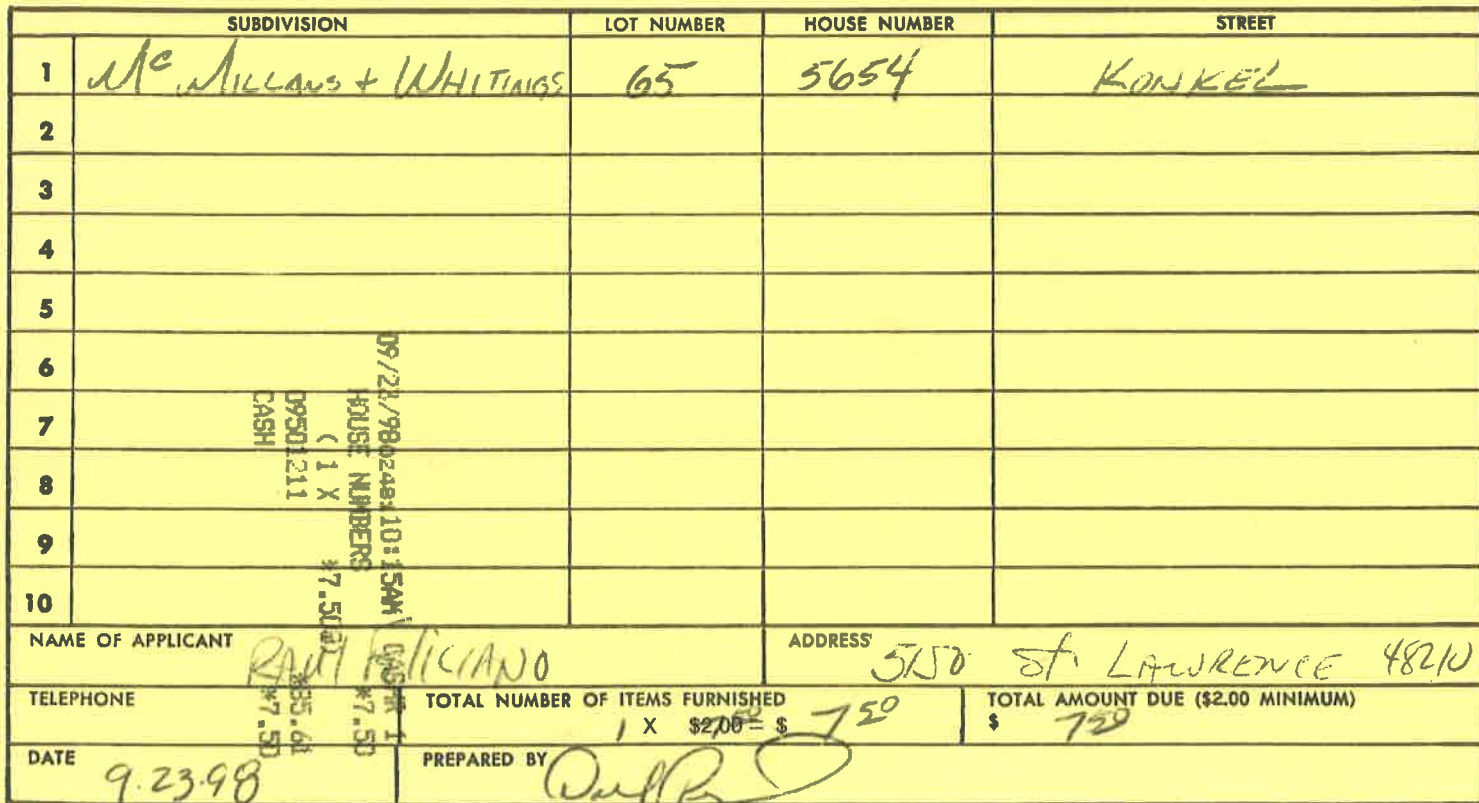 SUBDIVISION LOT NUMBER HOUSE NUMBER STREET
1 Mc Millans + Whitings 65 5654 Konkel
2
3
4
5
6
7
8
9
10
09/22/98 0248 10:15AM
HOUSE NUMBERS
( 1 X *7.50@) *7.50
09501211 *85.61
CASH *7.50
NAME OF APPLICANT Raul Feliciano ADDRESS 5150 St Lawrence 48210
TELEPHONE TOTAL NUMBER OF ITEMS FURNISHED TOTAL AMOUNT DUE ($2.00 MINIMUM)
1 X $2.00 = $ 7 50 $ 7 50
DATE 9.23.98 PREPARED BY